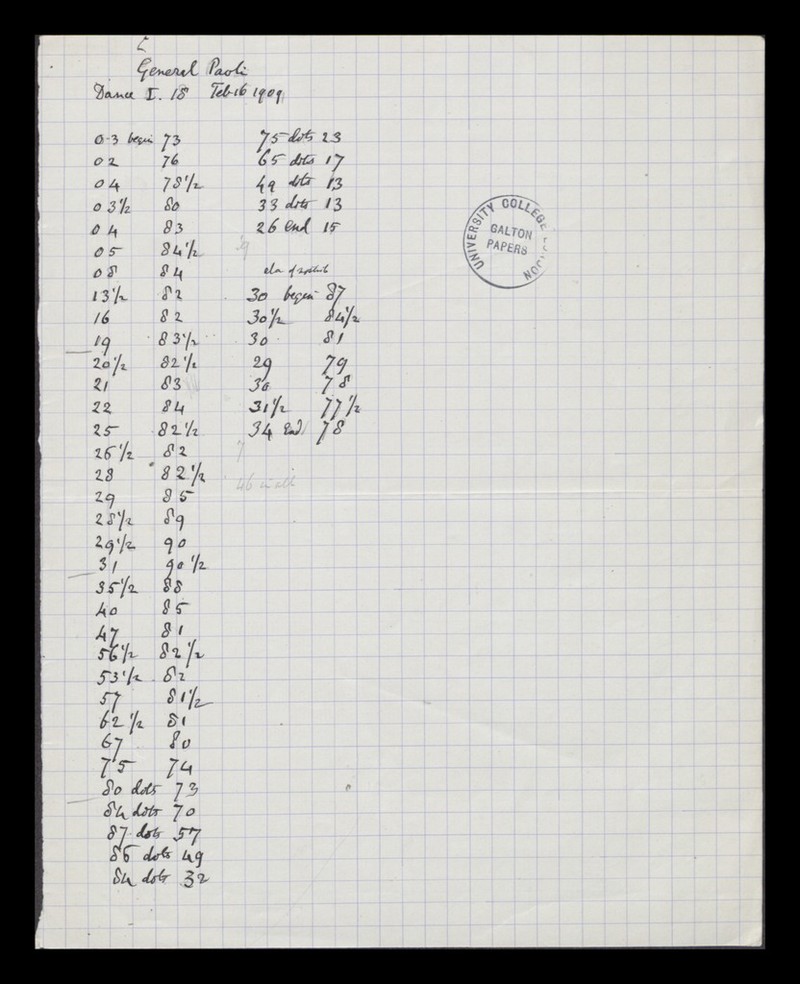 General Paoli
Dance I. 18 Feb 16 1909
0.3 begin 73
02 76
04 78 1/2
03 1/2 80
04 83
05 84 1/2
08 84
13 1/2 82
16 82
19 83 1/2
20 1/2 82 1/2
21 83
22 84
25 82 1/2
26 1/2 82
28 82 1/2
29 85
28 1/2 89
29 1/2 90
31 90 1/2
35 1/2 88
40 85
47 81
56 1/2 82 1/2
53 1/2 82
57 81 1/2
62 1/2 81
67 80
75 74
80 dots 73
84 dots 70
87 dots 57
86 dots 49
84 dots 32
75 dots 23
65 dots 17
49 dots 13
33 dots 13
26 end 15
30 begin 87
30 1/2 84 1/2
30 81
29 79
30 78
31 1/2 77 1/2
34 end 78
46 in all
UNIVERSITY COLLEGE LONDON
GALTON
PAPERS